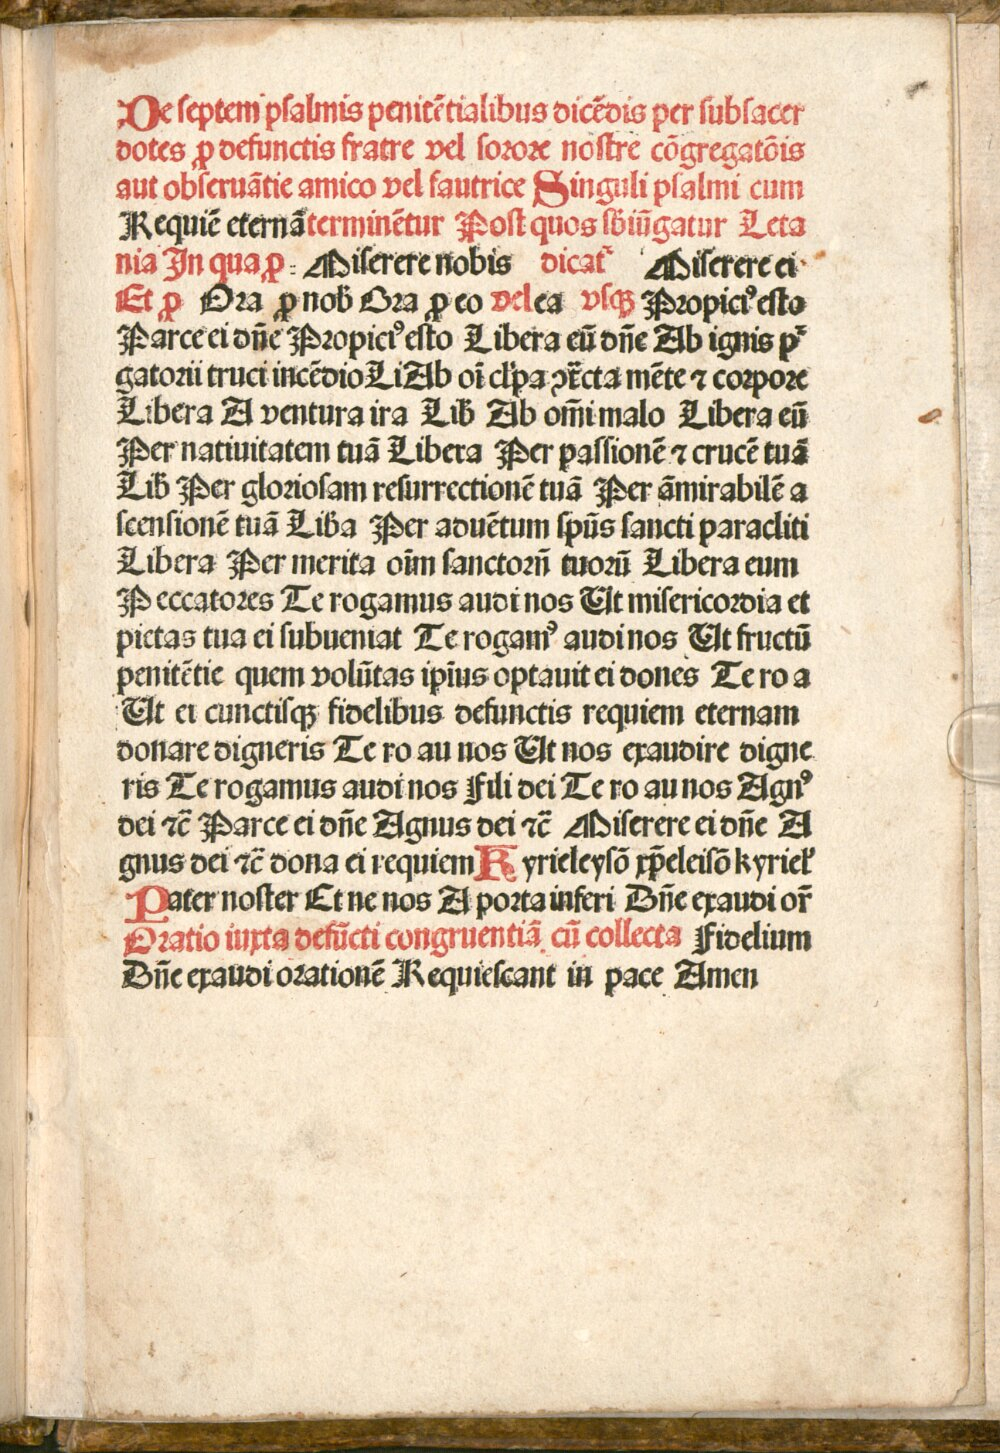 De septem psalmis penitẽtialibus dicẽdis per subsacer
dotes ꝓ defunctis fratre vel sorore nostre cõgregatõis
aut obseruãtie amico vel fautrice Singuli psalmi cum
Requiẽ eternã terminẽtur Post quos sb̃iũgatur Leta
nia In qua ꝓ: Miserere nobis dicat᷑ Miserere ei
Et ꝓ Ora ꝓ nob̃ Ora ꝓ eo vel ea vsqꝫ Propiciꝰ esto
Parce ei dñe Propiciꝰ esto Libera eũ dñe Ab ignis p᷑
gatorii truci incẽdio Li Ab oı̃ cl̃pa ↄ̃tr̃cta mẽte ⁊ corpore
Libera A ventura ira Lib̃ Ab om̃i malo Libera eũ
Per natiuitatem tuã Libera Per passionẽ ⁊ crucẽ tuã
Lib̃ Per gloriosam resurrectionẽ tuã Per ãmirabilẽ a
scensionẽ tuã Lib̃a Per aduẽtum sp̃us sancti paracliti
Libera Per merita oı̃m sanctorũ tuorũ Libera eum
Peccatores Te rogamus audi nos Ut misericordia et
pietas tua ei subueniat Te rogamꝰ audi nos Ut fructũ
penitẽtie quem volũtas ip̃ius optauit ei dones Te ro a
Ut ei cunctisqꝫ fidelibus defunctis requiem eternam
donare digneris Te ro au nos Ut nos exaudire digne
ris Te rogamus audi nos Fili dei Te ro au nos Agnꝰ
dei ⁊c̃ Parce ei dñe Agnus dei ⁊c̃ Miserere ei dñe A
gnus dei ⁊c̃ dona ei requiem Kyrieleysõ xp̃eleisõ kyriel᷑
Pater noster Et ne nos A porta inferi Dñe exaudi or̃
Oratio iuxta defũcti congruentiã cũ collecta Fidelium
Dñe exaudi orationẽ Requiescant in pace Amen